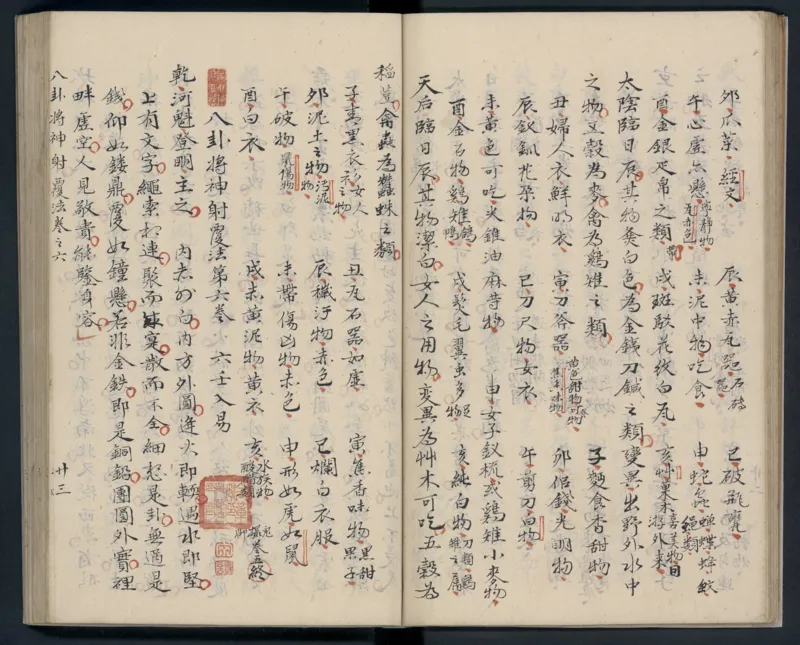 夘瓜菜　經文　辰黃赤瓦器石磚　巳破瓶甕
午心虛六懸寧靜物　未泥中物吃食　申蛇
酉金銀疋帛之類　戌斑駁花紋白瓦　亥草果木
太陰臨日辰其物黃白色為金錢刀鍼之類變異出野外水中
之物五穀為麥禽為鷄雉之類
丑婦人衣鮮明衣　寅刀斧器　夘侶錢光明物　子麵食香甜物
辰釵釧花朶物　巳刀尺物女衣　午剪刀白物
未黃色可吃火錐油麻苛物　申女子釵梳或鷄雉小麥物
酉金石物鷄雉鵝鴨　戌髮毛翼虫多物　亥純白物刀類鷄雉之屬
天后臨日辰其物潔白女人之用物變異為艸木可吃五穀為
稻荳禽蟲為蠶蛛之類
子青黑衣衫女人衣之物　丑瓦石器如虛　寅焦香味物果子黑甜
夘泥土之物污泥物　辰穢汙物赤色　巳爛白衣服
午破物梟傷物　未帶傷凶物赤色　申形如虎如鼠
酉白衣　戌未黃泥物黃衣　亥水族物　卷五終
八卦將神射覆法第六卷　六壬入易
乾河魁登明主之　內赤外白內方外圓逢火即輭遇水即堅
上有文字繩索相連聚而宴散而不全細想是卦無過是
錢仰如鏤鼎覆如鐘懸若非金鉄即是銅鉛團團圓外實裡
畔虛空人見敬貴能鑒身容
八卦將神射覆法卷之六　廿三